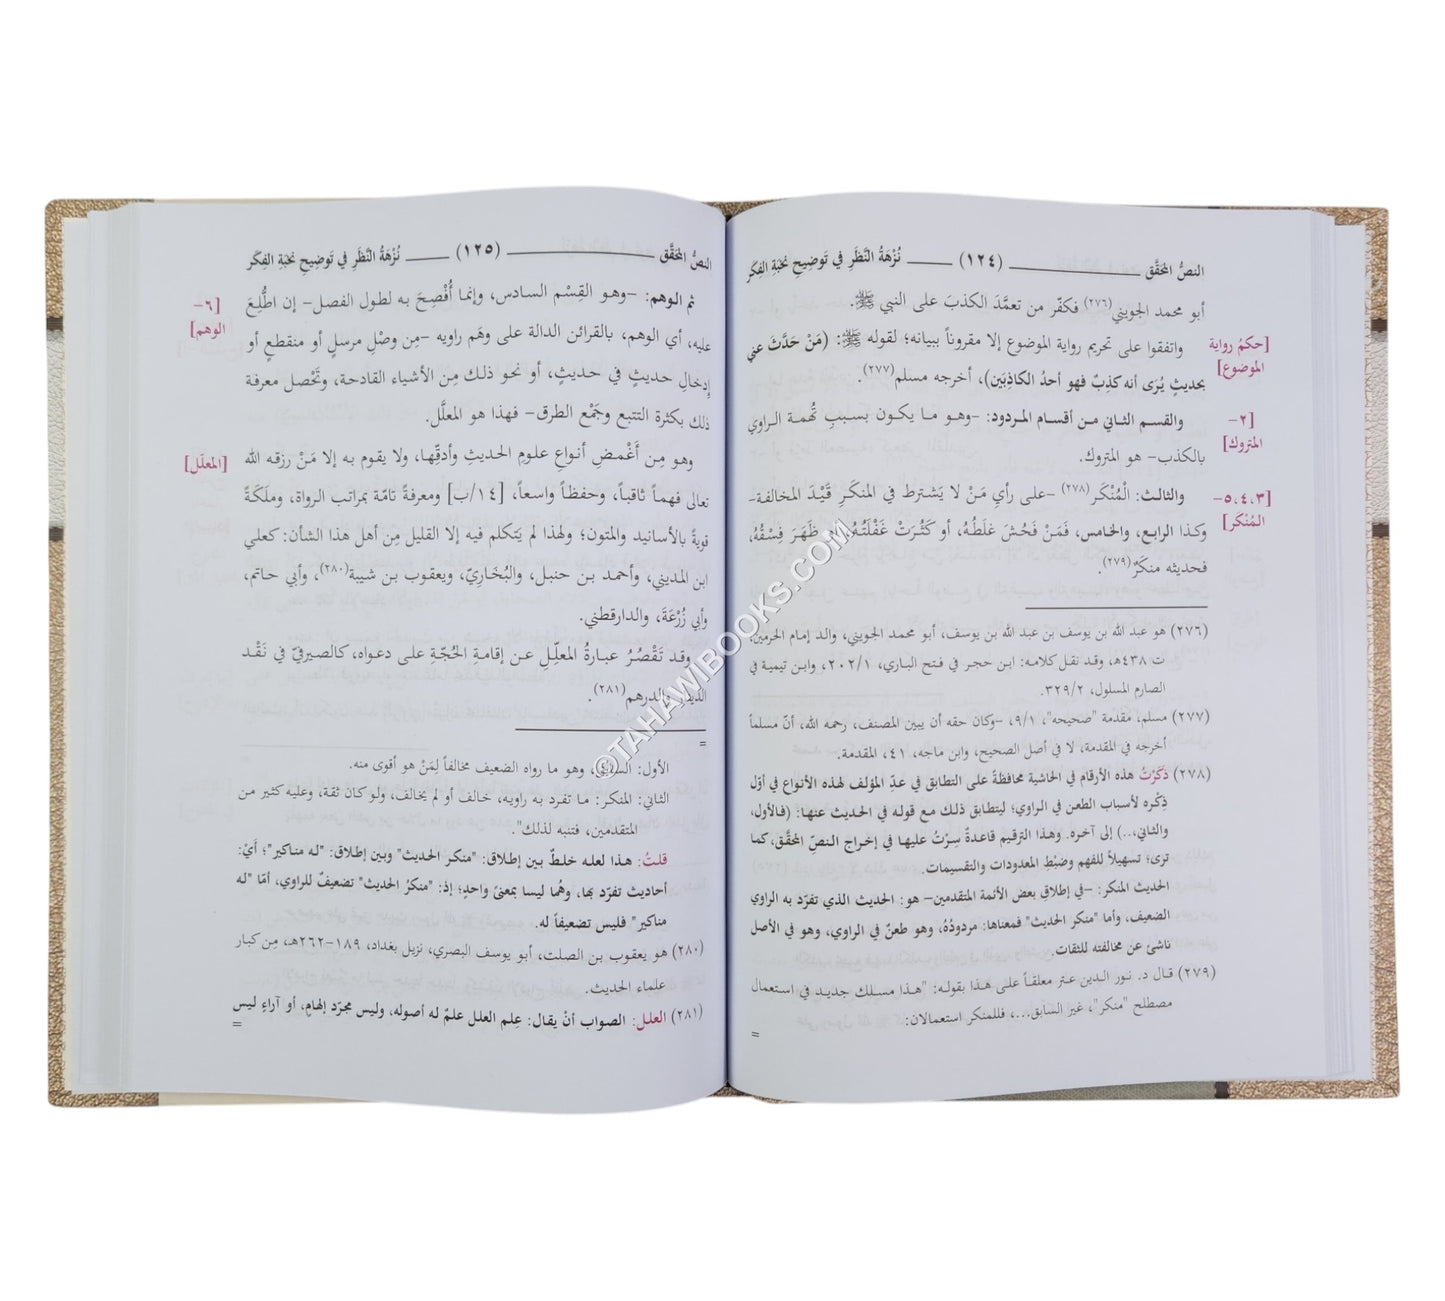 النصُّ المحَقَّق (١٢٤) نُزْهَةُ النَّظَرِ في تَوضِيحِ نخبَةِ الفِكَر
أبو محمد الجويني(٢٧٦) فكفّر من تعمَّدَ الكذبَ على النبي ﷺ.
[حكمُ رواية الموضوع]
واتفقوا على تحريم رواية الموضوع إلا مقروناً ببيانه؛ لقوله ﷺ: (مَنْ حَدَّثَ عني
بحديثٍ يُرَى أنه كذِبٌ فهو أحدُ الكاذِبَين)، أخرجه مسلم(٢٧٧).
[٢- المتروك]
والقسم الثاني مـن أقسـام المـردود: -وهـو مـا يكـون بسببِ تُهمـة الـراوي
بالكذب- هو المتروك.
[٣، ٤، ٥- المُنْكَر]
والثالث: الْمُنْكَر(٢٧٨) -على رأيِ مَنْ لا يَشـترط في المنكَـرِ قَيْـدَ المخالفـة-
وكـذا الرابـع، والخامس، فَمَـنْ فَحُـشَ غلَطُـهُ، أو كَثُـرَتْ غَفْلَتُـهُ، أو ظَهَـرَ فِسْـقُهُ،
فحديثه منكَرٌ(٢٧٩).
(٢٧٦) هو عبد الله بن يوسف بن عبد الله بن يوسف، أبو محمد الجويني، والد إمام الحرمين،
ت ٤٣٨هـ، وقد نقل كلامه: ابن حجر في فتح الباري، ٢٠٢/١، وابن تيمية في
الصارم المسلول، ٣٢٩/٢.
(٢٧٧) مسلم، مقدمة "صحيحه"، ٩/١، -وكان حقه أن يبين المصنف، رحمه الله، أنّ مسلماً
أخرجه في المقدمة، لا في أصل الصحيح، وابن ماجه، ٤١، المقدمة.
(٢٧٨) ذكَرْتُ هذه الأرقام في الحاشية محافظةً على التطابق في عدِّ المؤلف لهذه الأنواع في أوّل
ذِكْره لأسباب الطعن في الراوي؛ ليتطابق ذلك مع قوله في الحديث عنها: (فالأول،
والثاني،..) إلى آخره. وهذا الترقيم قاعدةٌ سِرْتُ عليها في إخراج النصّ المحقَّق، كما
ترى؛ تسهيلاً للفهم وضبْطِ المعدودات والتقسيمات.
الحديث المنكر: -في إطلاقِ بعض الأئمة المتقدمين- هو: الحديث الذي تفرّد به الراوي
الضعيف، وأما "منكر الحديث" فمعناها: مردودُهُ، وهو طعنٌ في الراوي، وهو في الأصل
ناشئ عن مخالفته للثقات.
(٢٧٩) قـال د. نور الـدين عـتر معلقـاً علـى هـذا بقولـه: "هـذا مسـلك جديـد في استعمال
مصطلح "منكر"، غير السّابق...، فللمنكر استعمالان:
=
النصُّ المحَقَّق (١٢٥) نُزْهَةُ النَّظَرِ في تَوضِيحِ نخبَةِ الفِكَر
[٦- الوهم]
ثم الـوهم: -وهـو القِسْـم السـادس، وإنمـا أُفْصِـحَ بـه لطـول الفصل- إن اطُّلِـعَ
عليه، أي الوهم، بالقرائن الدالة على وهَم راويه -مِن وصْلِ مرسلٍ أو منقطعٍ أو
إدخالِ حديثٍ في حديثٍ، أو نحو ذلـك مِـنَ الأشياء القادحـة، وتَحْصـل معرفـة
ذلك بكثرة التتبع وجَمْع الطرق- فهذا هو المعلَّل.
[المعلَل]
وهـو مِـن أَغْمـضِ أنـواعِ علـومِ الحـديثِ وأدقّهـا، ولا يقـوم بـه إلا مَـنْ رزقـه الله
تعالى فهماً ثاقباً، وحفظاً واسعاً، [١٤/ب] ومعرفةً تامّة بمراتب الرواة، وملَكَةً
قويةً بالأسانيد والمتون؛ ولهذا لم يَتكلم فيه إلا القليل مِن أهل هذا الشأن: كعلي
ابن المديني، وأحمد بن حنبل، والبُخَاريّ، ويعقوب بن شيبة(٢٨٠)، وأبي حاتم،
وأبي زُرْعَةَ، والدارقطني.
وقد تَقْصُرُ عبـارةُ المعلِّـلِ عـن إقامـةِ الحُجّـةِ علـى دعـواه، كالصيرفيّ في نَقْـد
الدينار والدرهم(٢٨١).
=
الأول: السابق، وهو ما رواه الضعيف مخالفاً لِمَنْ هو أقوى منه.
الثاني: المنكر: مـا تفـرد بـه راويه، خـالف أو لم يخالف، ولـو كـان ثقـة، وعليه كثير من
المتقدمين، فتنبه لذلك".
قلتُ: هـذا لعلـه خلـطٌ بـين إطـلاق: "منكر الحـديث" وبـين إطـلاق: "لـه مناكير"؛ أيْ:
أحاديث تفرّد بها، وهُما ليسا بمعنىً واحدٍ؛ إذ: "منكرُ الحديث" تضعيفٌ للراوي، أمّا "له
مناكير" فليس تضعيفاً له.
(٢٨٠) هو يعقوب بن الصلت، أبو يوسف البصري، نزيل بغداد، ١٨٩-٢٦٢هـ، مِن كبار
علماء الحديث.
(٢٨١) العلـل: الصـواب أنْ يقـال: عِلـم العلـل علـمٌ لـه أصـوله، وليس مجـرّد إلهـامٍ، أو آراءٍ ليس
=
©TAHAWIBOOKS.COM